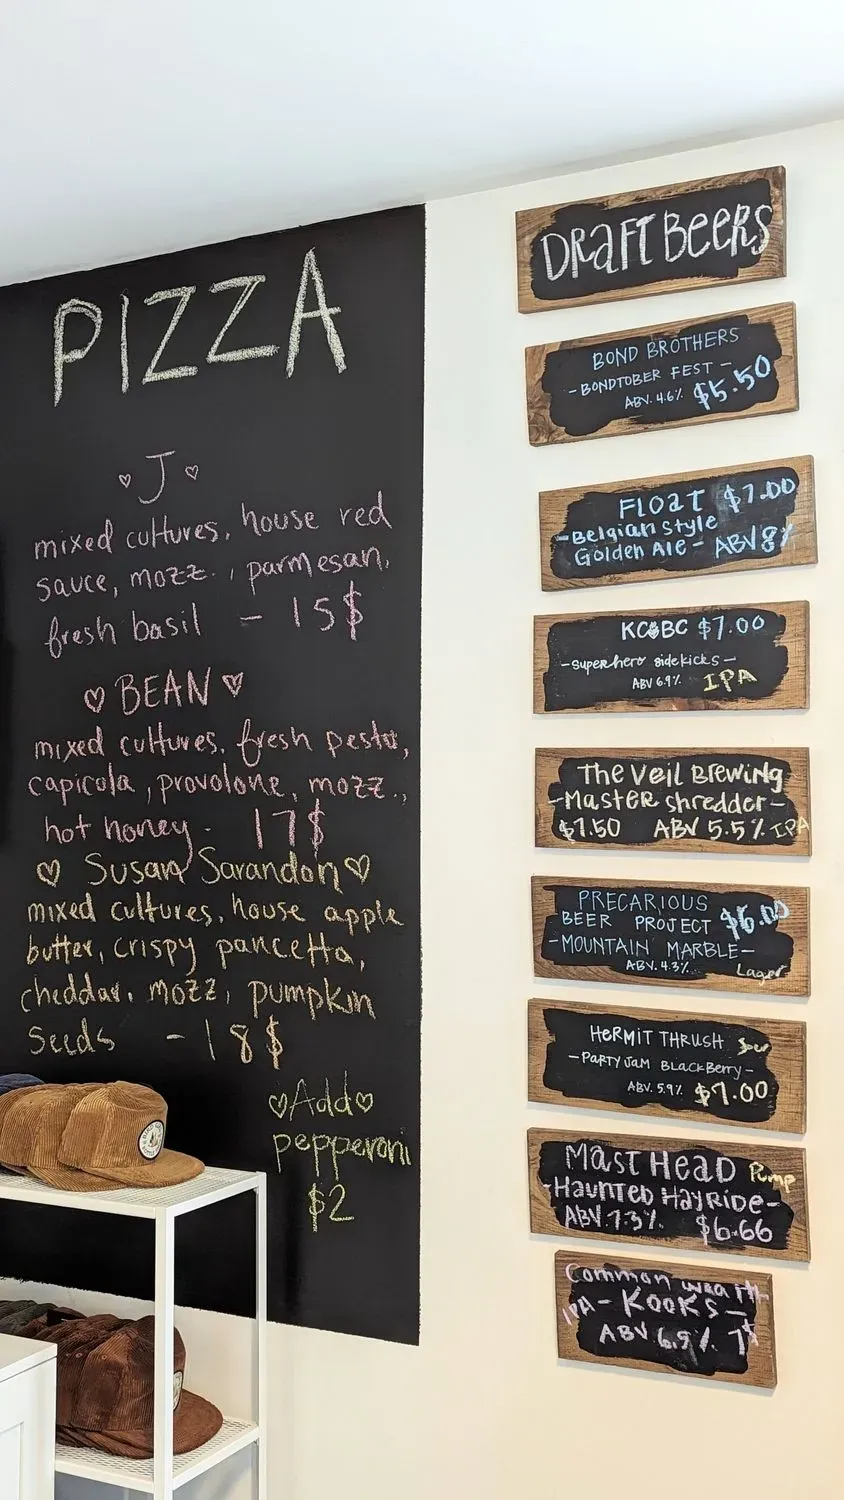 PIZZA
J
mixed cultures, house red
sauce, mozz., parmesan,
fresh basil - 15$
BEAN
mixed cultures, fresh pesto,
capicola, provolone, mozz.,
hot honey - 17$
Susan Sarandon
mixed cultures, house apple
butter, crispy pancetta,
cheddar, mozz, pumpkin
seeds - 18$
Add
pepperoni
$2
DRAFT BEERS
BOND BROTHERS
- BONDTOBER FEST -
ABV. 4.6% $5.50
FLOAT $7.00
- Belgian Style
Golden Ale - ABV 8%
KCBC $7.00
- Superhero sidekicks -
ABV 6.9% IPA
The Veil Brewing
- Master shredder -
$7.50 ABV 5.5% IPA
PRECARIOUS
BEER PROJECT $6.00
- MOUNTAIN MARBLE -
ABV. 4.3% Lager
HERMIT THRUSH Sour
- PARTY JAM BLACKBERRY -
ABV. 5.9% $7.00
MAST HEAD Pump
- HAUNTED HAYRIDE -
ABV. 7.3% $6.66
Common wealth
IPA - KOOKS -
ABV 6.9% 7$